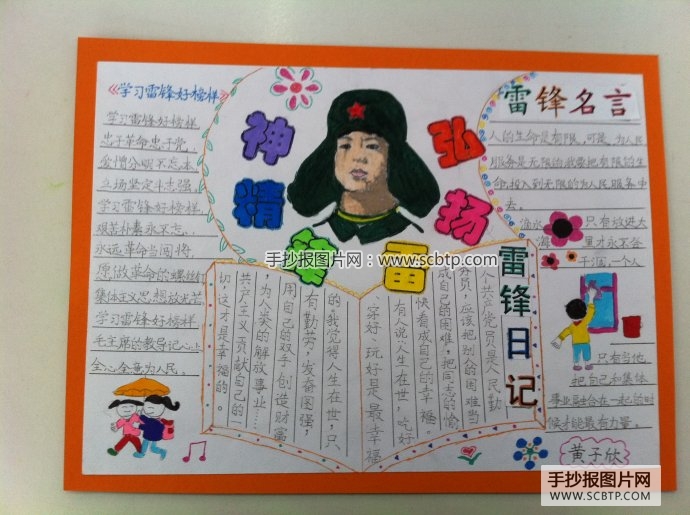 《学习雷锋好榜样》
学习雷锋好榜样
忠于革命忠于党，
爱憎分明不忘本，
立场坚定斗志强，
学习雷锋好榜样
艰苦朴素永不忘。
永远革命当闯将，
愿做革命的螺丝钉
集体主义思想放光芒
学习雷锋好榜样
毛主席的教导记心上
全心全意为人民。
弘扬
雷锋
精神
手抄报图片网：www.scbtp.com
雷锋日记
共产党员是人民勤
务员，应该把别人的困难当
成自己的困难，把同志的愉
快看成自己的幸福。
有人说人生在世，吃好
穿好、玩好是最幸福
的，我觉得人生在世，只
有勤劳，发奋图强，
用自己的双手创造财富
，为人类的解放事业……
共产主义贡献自己的一
切，这才是幸福的。
雷锋名言
人的生命是有限，可是，为人民
服务是无限的我要把有限的生
命，投入到无限的为人民服务中
去。
滴水 只有放进大
海 里才永不会
干涸，一个人
只有当他
把自己和集体
事业融合在一起的时
候才能最有力量。
黄子欣
手抄报图片网
WWW.SCBTP.COM